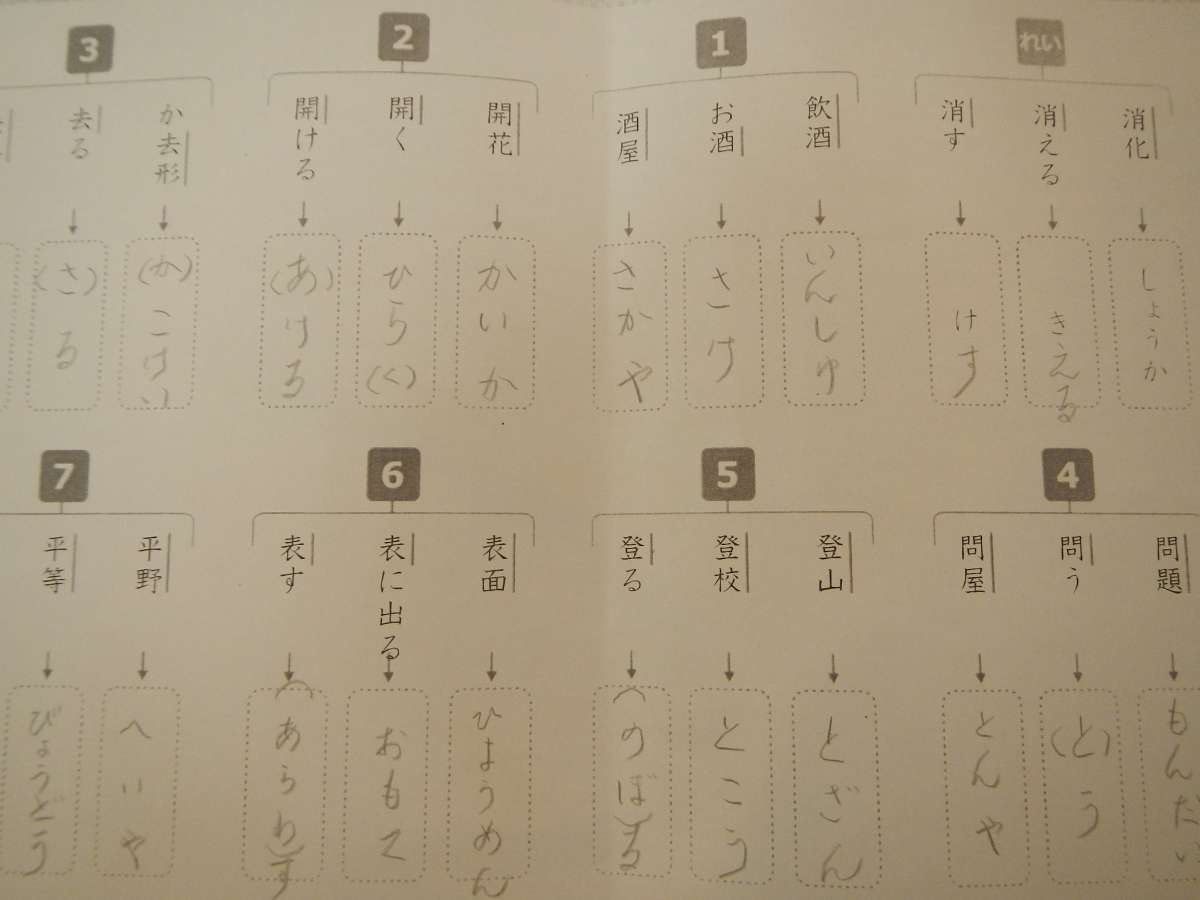 れい
消化
しょうか
消える
きえる
消す
けす
1
飲酒
いんしゅ
お酒
さけ
酒屋
さかや
2
開花
かいか
開く
ひら(く)
開ける
(あ)ける
3
か去形
(か)こけい
去る
(さ)る
4
問題
もんだい
問う
(と)う
問屋
とんや
5
登山
とざん
登校
とこう
登る
(のぼ)る
6
表面
ひょうめん
表に出る
おもて
表す
(あらわ)す
7
平野
へいや
平等
びょうどう